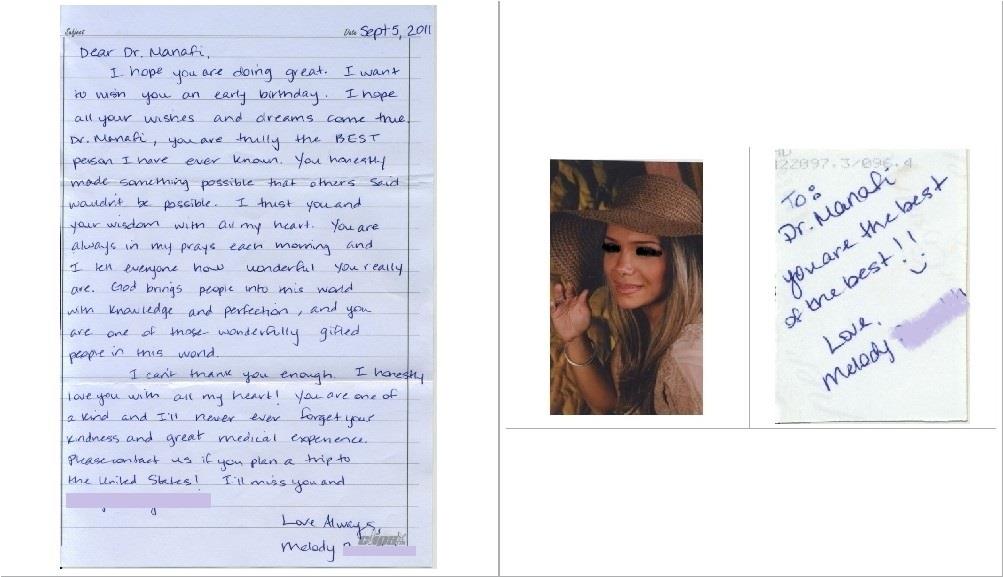 Subject
Date Sept 5, 2011
Dear Dr. Manafi,
I hope you are doing great. I want
to wish you an early birthday. I hope
all your wishes and dreams come true.
Dr. Manafi, you are trully the BEST
person I have ever known. You honestly
made something possible that others said
wouldn't be possible. I trust you and
your wisdom with all my heart. You are
always in my prays each morning and
I tell everyone how wonderful you really
are. God brings people into this world
with knowledge and perfection, and you
are one of those wonderfully gifted
people in this world.
I can't thank you enough. I honestly
love you with all my heart! You are one of
a kind and I'll never ever forget your
kindness and great medical experience.
Please contact us if you plan a trip to
the United States! I'll miss you and
Love Always,
Melody
22097.3/096.4
To:
Dr. Manafi
you are the best
of the best!!
Love,
Melody